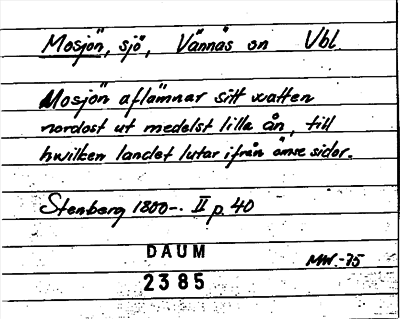 Mosjön, sjö, Vännäs sn Vbl.
Mosjön aflämnar sitt watten
nordost ut medelst lilla ån, till
hwilken landet lutar ifrån ömse sidor.
Stenberg 1800-. II p. 40
DAUM MW.-75
2385